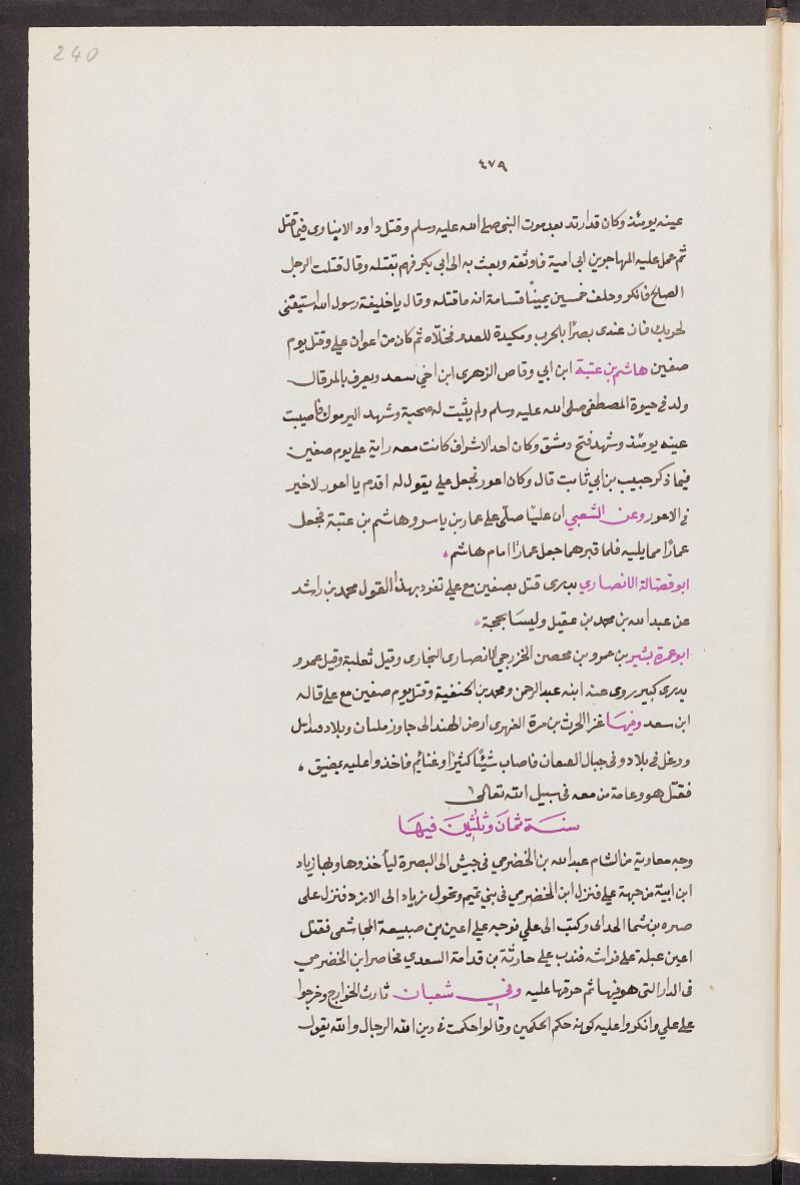 240
٤٧٩
عينه يومئذ وكان قد ارتد بعد موت النبى صلى الله عليه وسلم وقتل داود الابناوى فيمن قتل
ثم عمل عليه المهاجر بن ابى امية فاوثقه وبعث به الى ابى بكر فهم بقتله وقال قتلت الرجل
الصلح فانكر وحلف خمسين يمينًا قسامة انه ما قتله وقال يا خليفة رسول الله استبقنى
لحربك فان عندى بصرًا بالحرب ومكيدة للعدو فخلاه ثم كان من اعوان على وقتل يوم
صفين هاشم بن عتبة ابن ابي وقاص الزهرى ابن اخي سعد ويعرف بالمرقال
ولد فى حيوة المصطفى صلى الله عليه وسلم ولم يثبت له صحبة وشهد اليرموك فاصيبت
عينه يومئذ وشهد فتح دمشق وكان احد الاشراف كانت معه راية على يوم صفين
فيما ذكر حبيب بن ابي ثابت قال وكان اعور فجعل على يقول له اقدم يا اعور لا خير
فى الاعور وعن الشعبي ان عليًا صلّى على عمار بن ياسر وهاشم بن عتبة فجعل
عمارًا مما يليه فلما قبرهما جعل عمارًا امام هاشم
ابو فضالة الانصاري بدرى قتل بصفين مع على تفرد بهذا القول محمد بن راشد
عن عبد الله بن محمد بن عقيل وليسا بحجة
ابو عمرة بشير بن عمرو بن محصن الخزرجي الانصارى النجارى وقيل ثعلبة وقيل عمرو
بدرى كبير روى عنه ابنه عبد الرحمن ومحمد بن الحنفية وقتل يوم صفين مع على قاله
ابن سعد وفيها غزا الحرث بن مرة الفهرى ارض الهند الى جاوز وبلاد
ودغل فى بلاد وفى جبال فاصاب شيئًا كثيرًا وغنائم فاخذوا عليه بمضيق
فقتل هو وعامة من معه فى سبيل الله تعالى
سنة ثمان وثلثين فيها
وجه معاوية من الشام عبد الله بن الخضرمي فى جيش الى البصرة ليأخذوها وبها زياد
ابن ابيه من جهة على فنزل ابن الخضرمي فى بني تميم وتحول زياد الى الازد فنزل على
صبره بن شما الحدانى وكتب الى علي فوجه علي اعين بن ضبيعة المجاشعى فقتل
اعين غيلة على فراشه فندب على حارثة بن قدامة السعدي فحاصر ابن الخضرمي
فى الدار التى هو فيها ثم حرقها عليه وفي شعبان ثارت الخوارج وخرجوا
على علي وانكروا عليه كونه حكم الحكمين وقالوا حكمت فى دين الله الرجال والله يقول